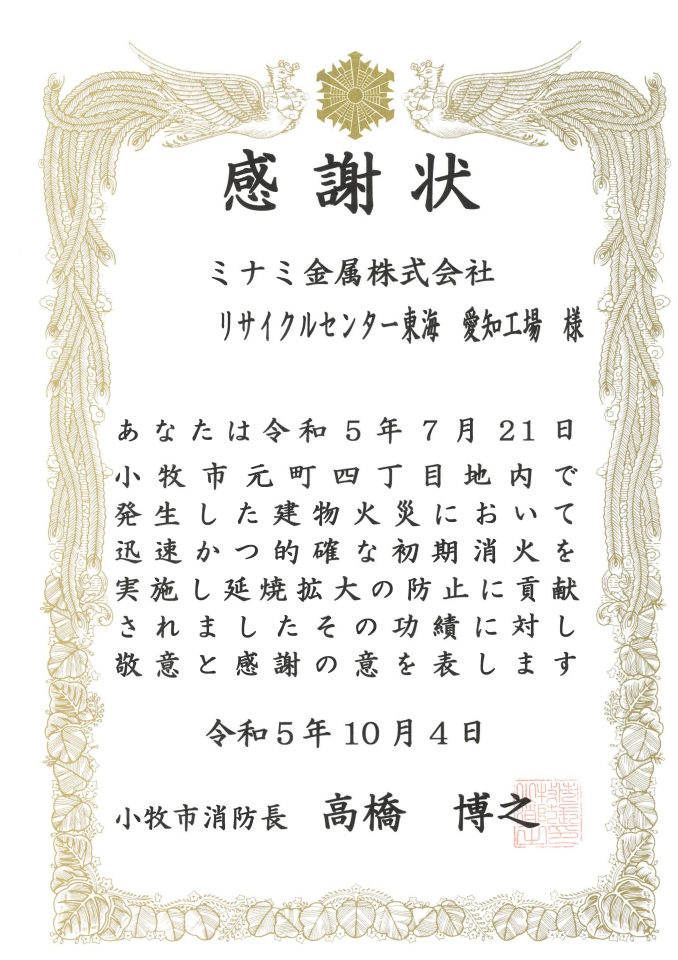 感謝状
ミナミ金属株式会社
リサイクルセンター東海　愛知工場　様
あなたは令和5年7月21日
小牧市元町四丁目地内で
発生した建物火災において
迅速かつ的確な初期消火を
実施し延焼拡大の防止に貢献
されましたその功績に対し
敬意と感謝の意を表します
令和5年10月4日
小牧市消防長　高橋　博之